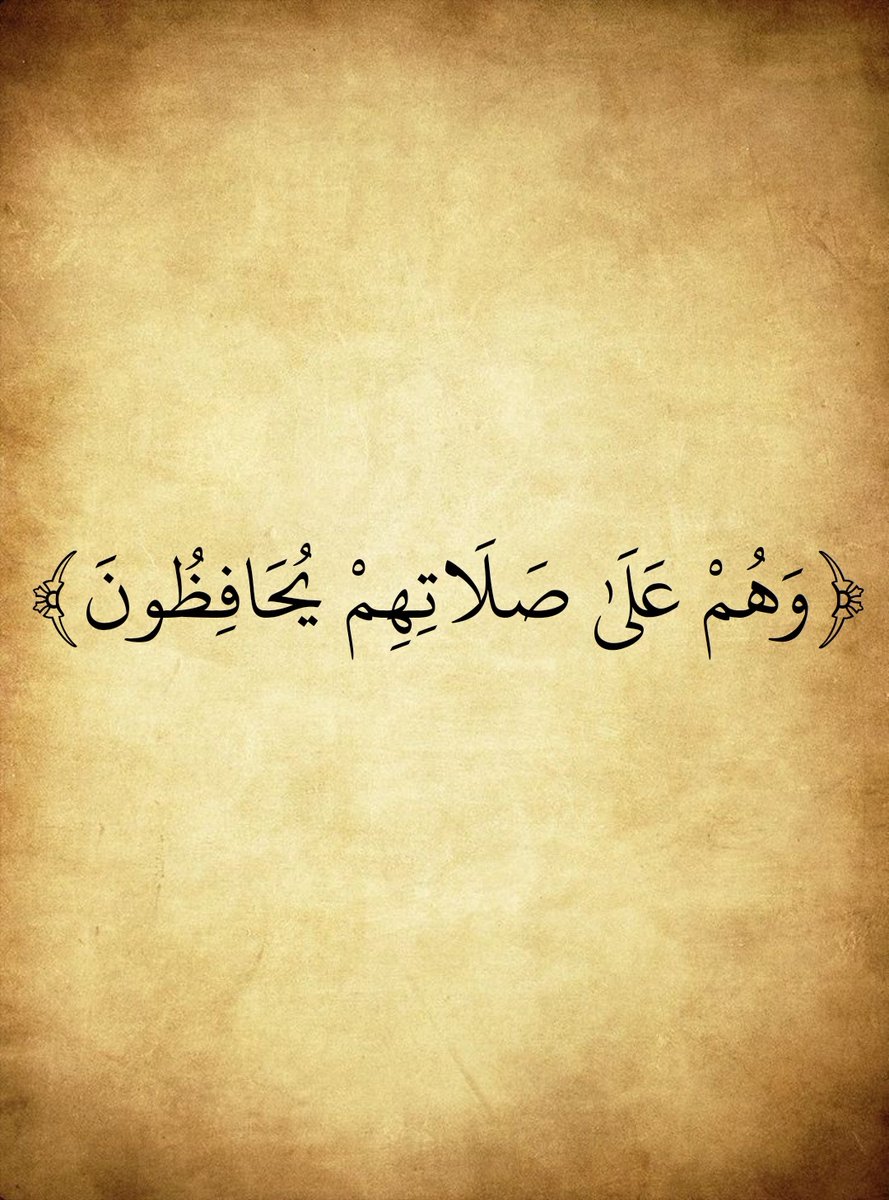 ﴿وَهُمْ عَلَىٰ صَلَاتِهِمْ يُحَافِظُونَ﴾